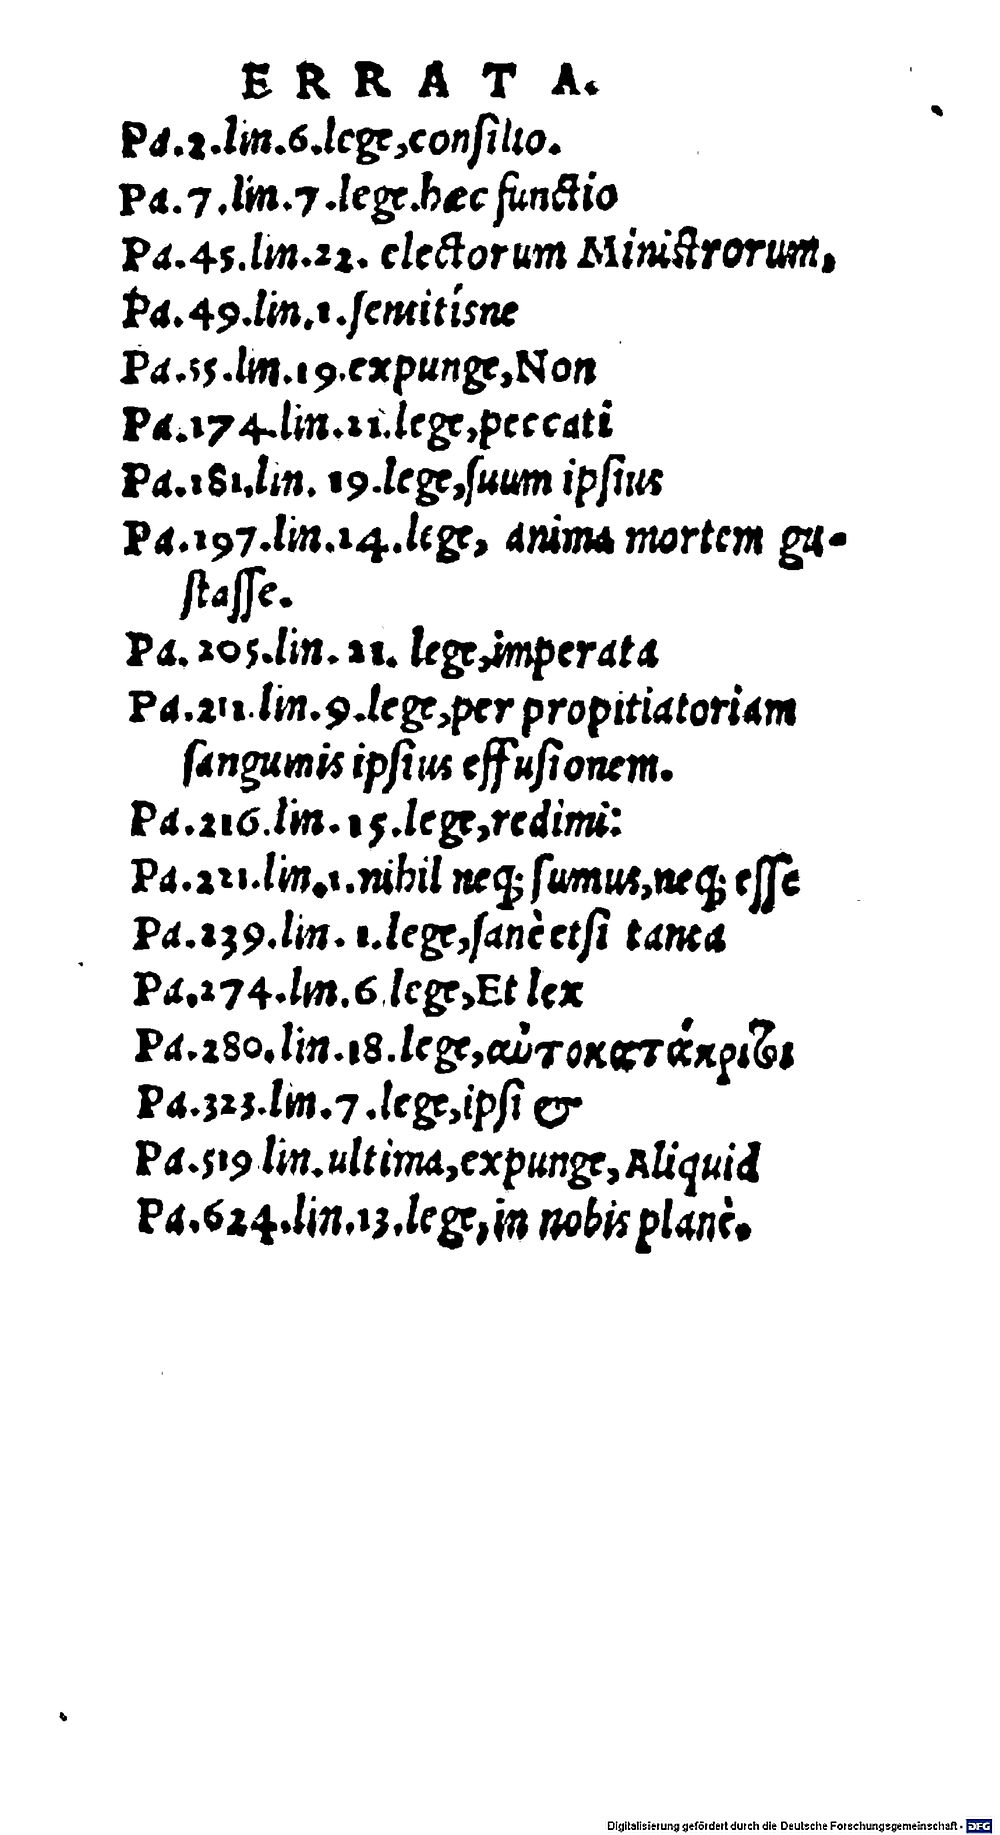 ERRATA.
Pa.2.lin.6.lege,conſilio.
Pa.7.lin.7.lege.hæc functio
Pa.45.lin.22. electorum Miniſtrorum,
Pa.49.lin.1.ſentitísne
Pa.55.lin.19.expunge,Non
Pa.174.lin.21.lege,peccati
Pa.181.lin. 19.lege,ſuum ipſius
Pa.197.lin.14.lege, anima mortem gu-
ſtaſſe.
Pa. 205.lin. 21. lege,imperata
Pa.211.lin.9.lege,per propitiatoriam
ſanguinis ipſius effuſionem.
Pa.216.lin.15.lege,redimi:
Pa.221.lin.1.nihil neq; ſumus,neq; eſſe
Pa.239.lin. 1.lege,ſanè etſi tanta
Pa.274.lin.6.lege,Et lex
Pa.280.lin.18.lege,αὐτοκατάκριτοι
Pa.323.lin.7.lege,ipſi &
Pa.519 lin.ultima,expunge,Aliquid
Pa.624.lin.13.lege,in nobis planè.
Digitalisierung gefördert durch die Deutsche Forschungsgemeinschaft - DFG